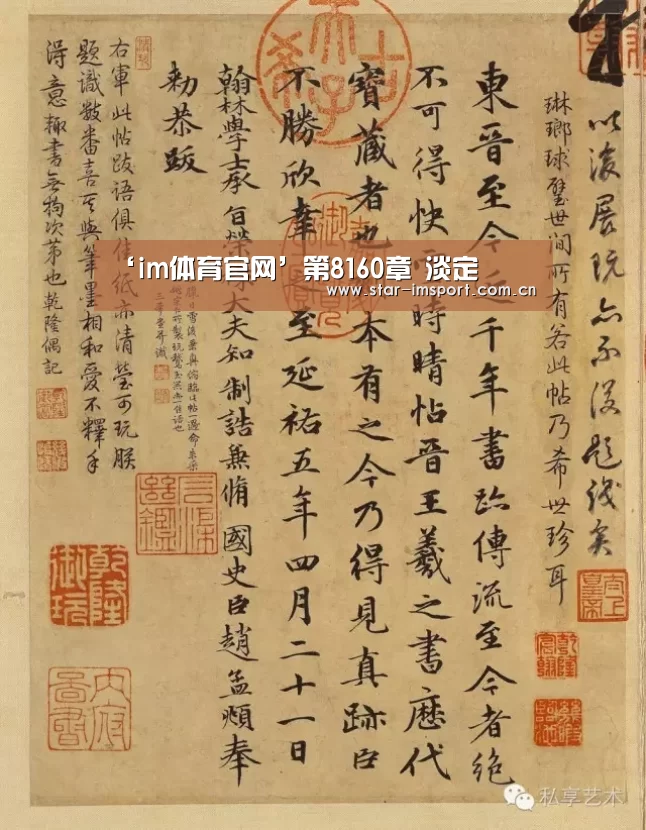 以後展玩亦不復題識矣
琳瑯球璧世間所有若此帖乃希世珍耳
東晉至今近千年書跡傳流至今者絕
不可得快雪時晴帖晉王羲之書歷代
寶藏者也
本有之今乃得見真跡臣
不勝欣幸
之至延祐五年四月二十一日
翰林學士承旨榮
大夫知制誥兼脩國史臣趙孟頫奉
勑恭跋
右軍此帖跋語俱佳紙亦清瑩可玩朕
題識數番喜其與筆墨相和愛不釋手
得意輒書無拘次第也乾隆偶記
‘im体育官网’第8160章 淡定
www.star-imsport.com.cn
乾隆
御玩
内府
圖書
私享艺术